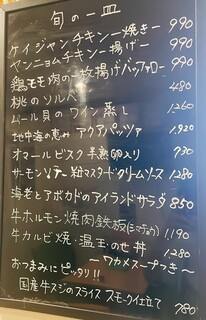 旬の一皿
ケイジャンチキン ー焼きー 990
ヤンニョムチキン ー揚げー 990
鶏モモ肉の一枚揚げバッファロー 990
桃のソルベ 480
ムール貝のワイン蒸し 1,260
地中海の恵み アクアパッツァ 1,920
オマールビスク 半熟卵入り 730
サーモンソテー 粒マスタードクリームソース 1,280
海老とアボカドのアイランドサラダ 850
牛ホルモン焼肉鉄板(ミニライス) 1,190
牛カルビ焼・温玉のせ丼 1,280
ーワカメスープつきー
おつまみにピッタリ!!
国産牛スジのスライス スモーク仕立て 780